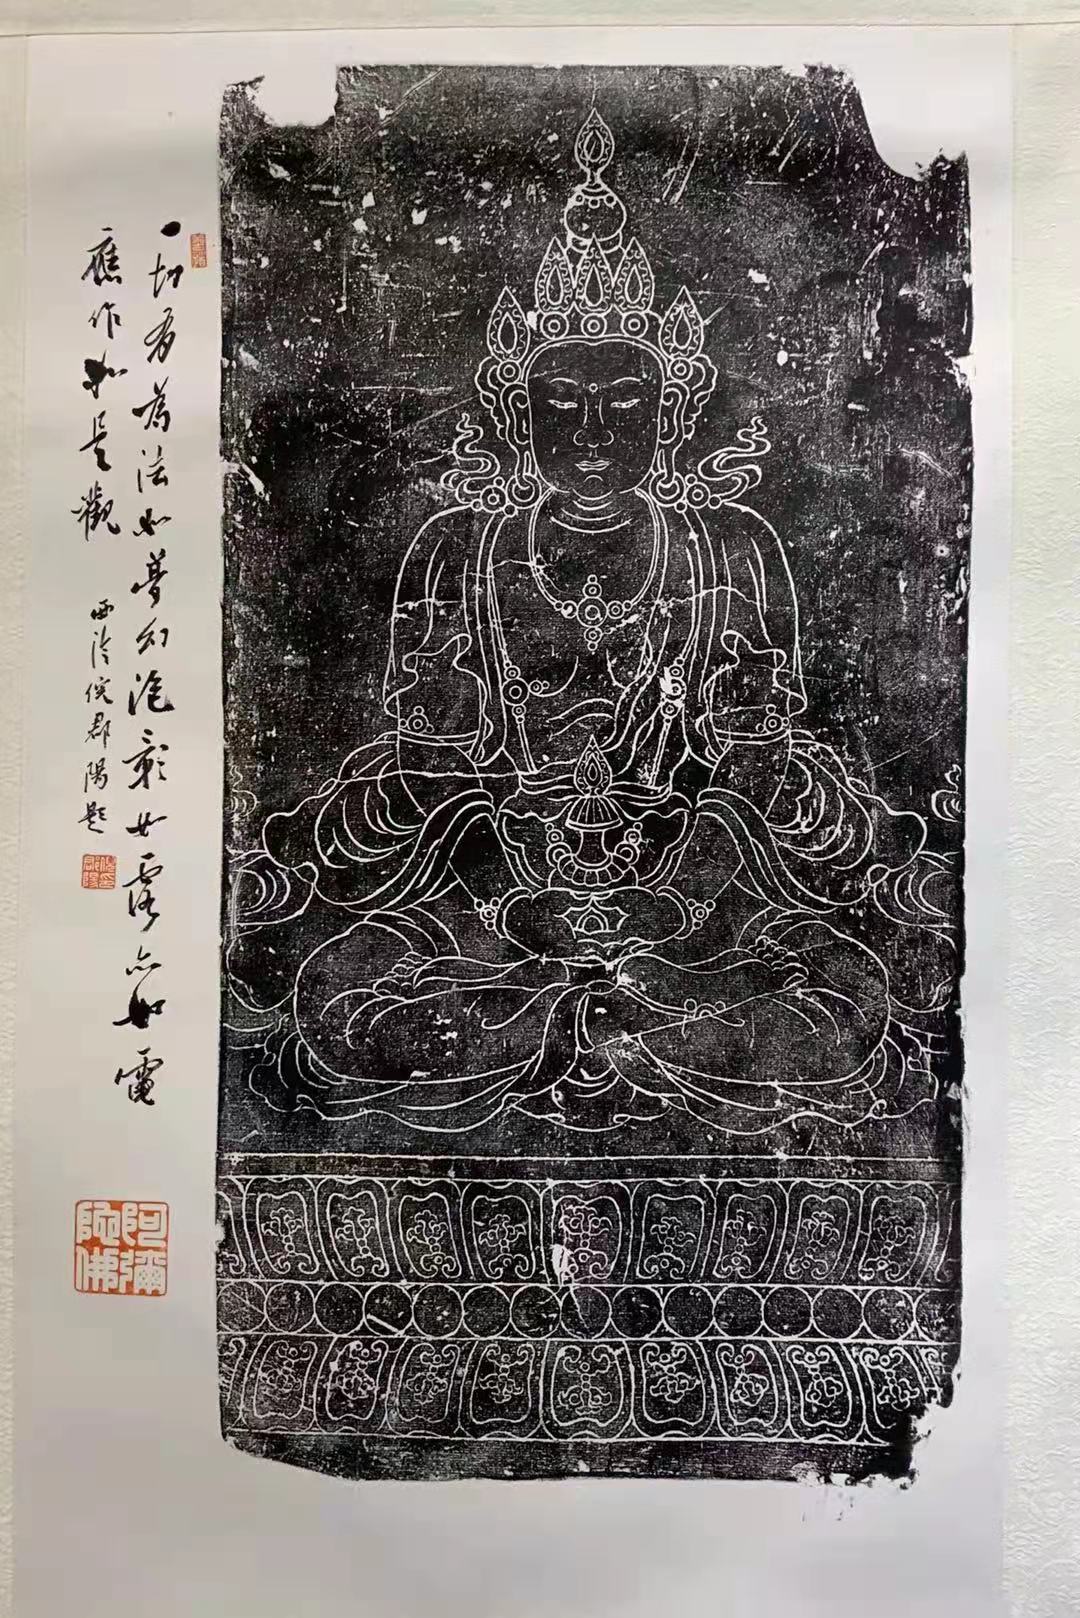 一切有為法如夢幻泡影如露亦如電
應作如是觀
西泠倪郡陽題
阿彌
陀佛